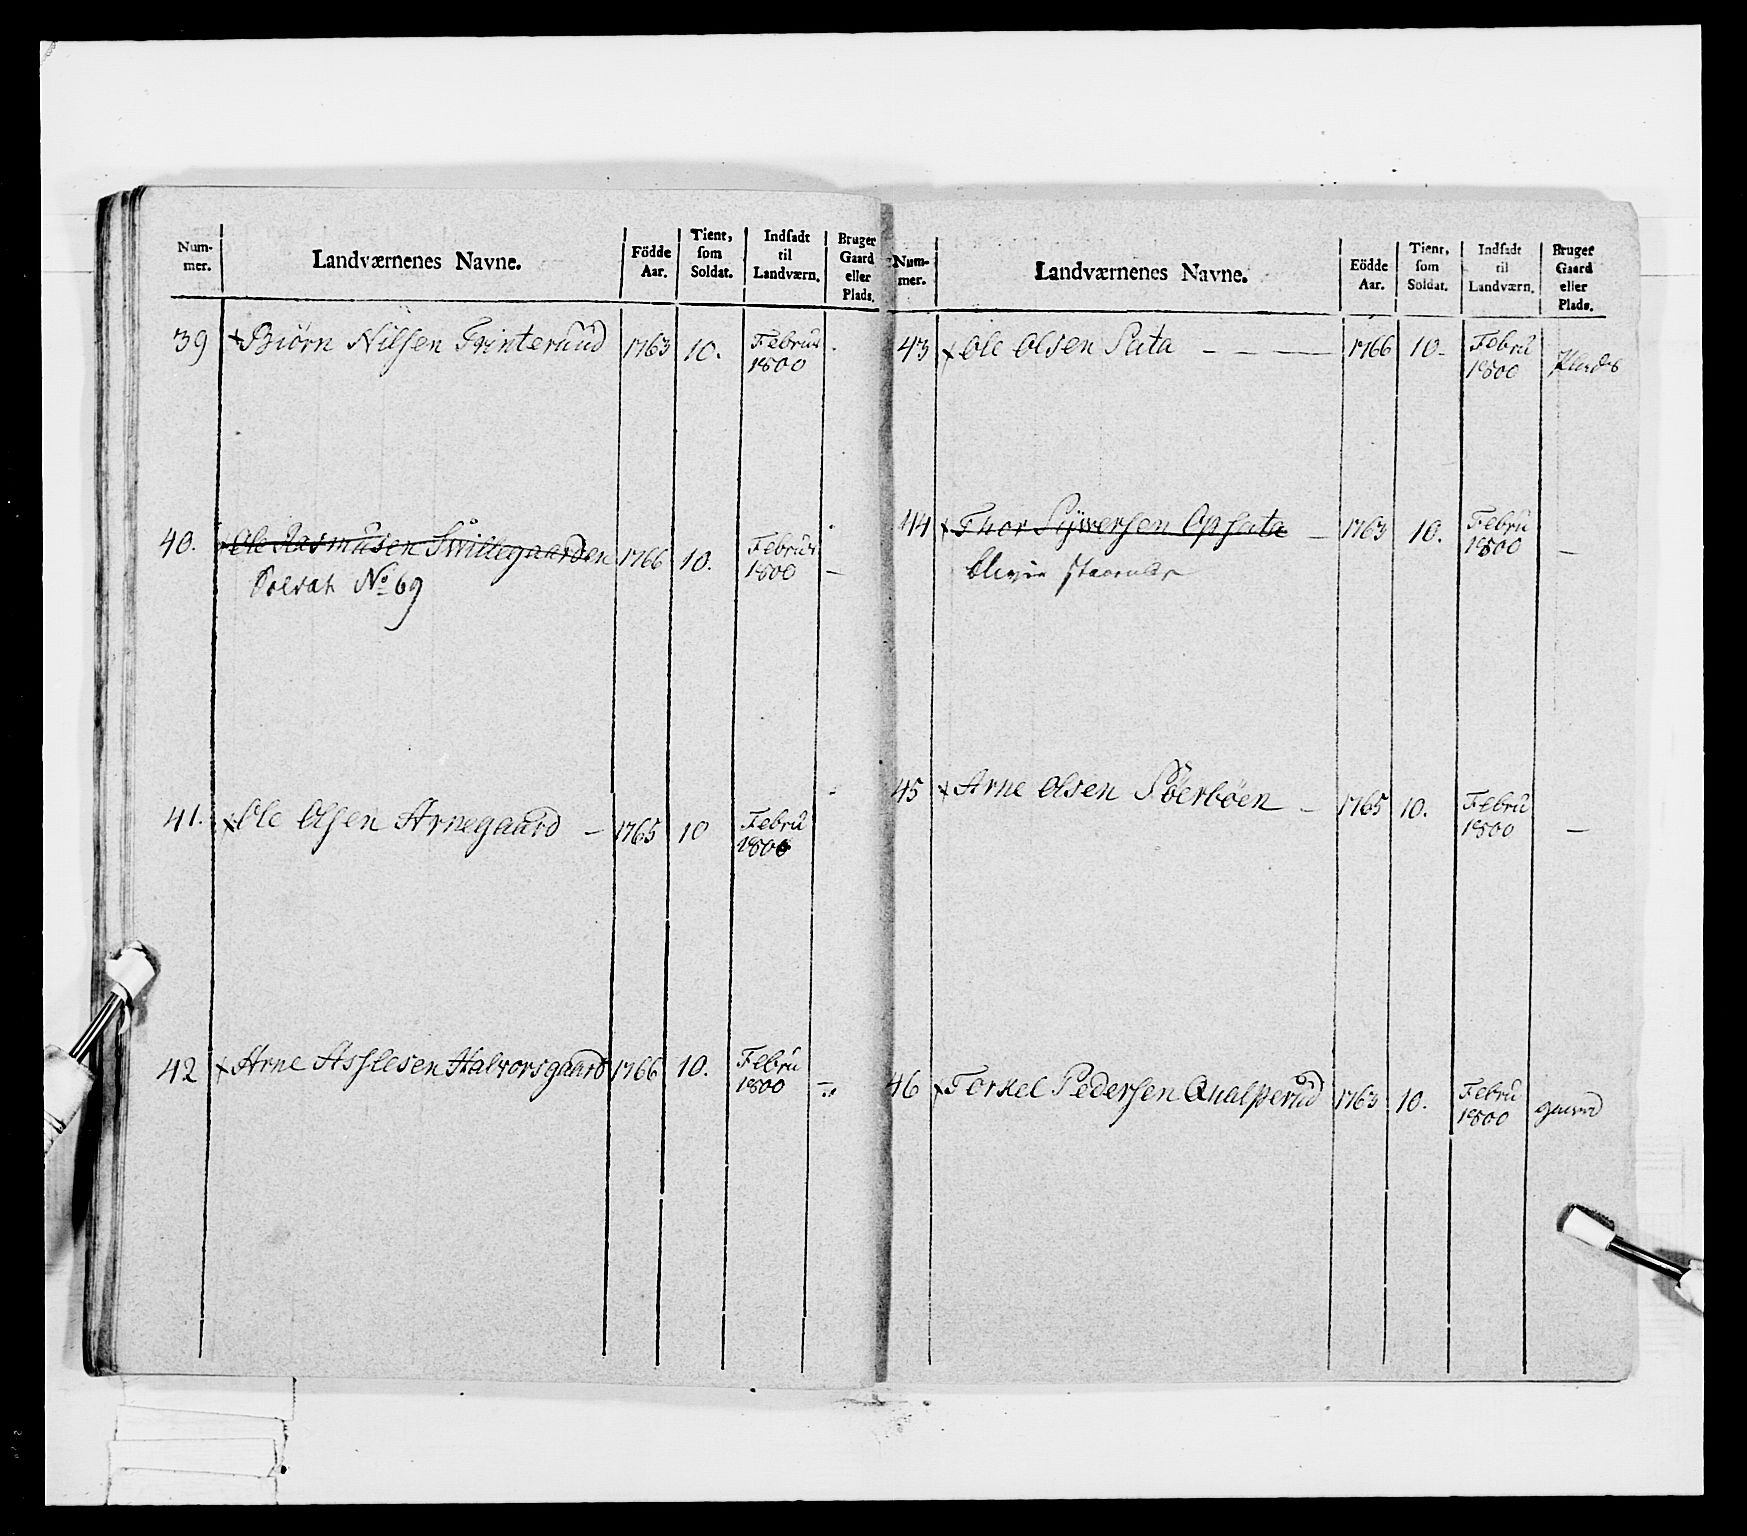 Num-
mer.
Landværnenes Navne.
Födde
Aar.
Tient,
som
Soldat.
Indsadt
til
Landværn.
Bruger
Gaard
eller
Plads.
39 Biørn Nilsen Trinterud 1763 10. Febru
1800
40. Ole Rasmusen Svittegaarden 1766 10. Febru
1800 —
Soldat No 69
41. Ole Olsen Arnegaard — 1765 10 Febru
1800
42 Arne Asslesen Halvorsgaard 1766 10. Febru
1800
Num-
mer.
Landværnenes Navne.
Födde
Aar.
Tient,
som
Soldat.
Indsadt
til
Landværn.
Bruger
Gaard
eller
Plads.
43 Ole Olsen Sata — — — 1766 10- Febru
1800
44 Thor Sywersen Opsata — 1763 10. Febru
1800 —
45 Arne Olsen Söerböen — 1765 10. Febru
1800 —
46 Torkel Pedersen Qualperud 1763 10. Febru
1800 gaard